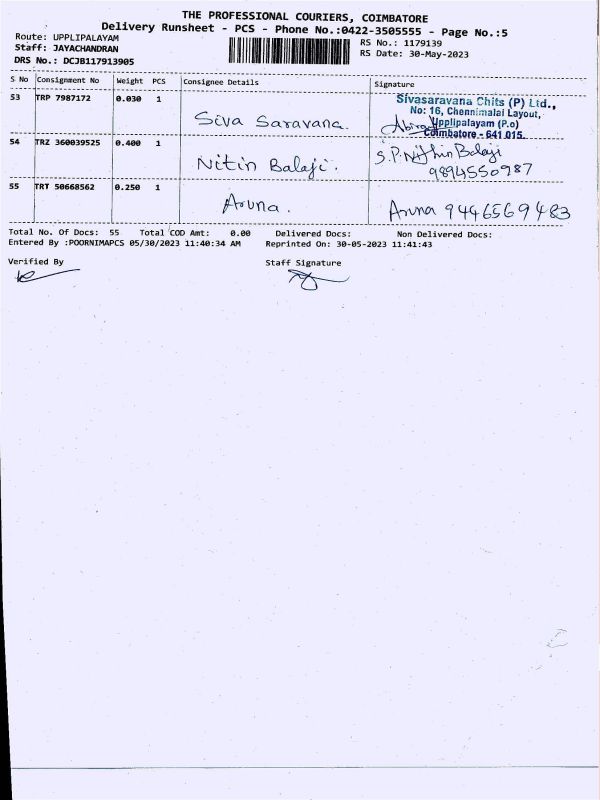 THE PROFESSIONAL COURIERS, COIMBATORE
Delivery Runsheet - PCS - Phone No.:0422-3505555 - Page No.:5
Route: UPPLIPALAYAM RS No.: 1179139
Staff: JAYACHANDRAN RS Date: 30-May-2023
DRS No.: DCJB117913905
S No Consignment No Weight PCS Consignee Details Signature
53 TRP 7987172 0.030 1 Siva Saravana. Sivasaravana Chits (P) Ltd.,
No: 16, Chennimalai Layout,
Upplipalayam (P.o)
Coimbatore - 641 015.
54 TRZ 360039525 0.400 1 Nitin Balaji. S.P. Nithin Balaji
9894550987
55 TRT 50668562 0.250 1 Aruna. Aruna 9446569483
Total No. Of Docs: 55 Total COD Amt: 0.00 Delivered Docs: Non Delivered Docs:
Entered By :POORNIMAPCS 05/30/2023 11:40:34 AM Reprinted On: 30-05-2023 11:41:43
Verified By Staff Signature